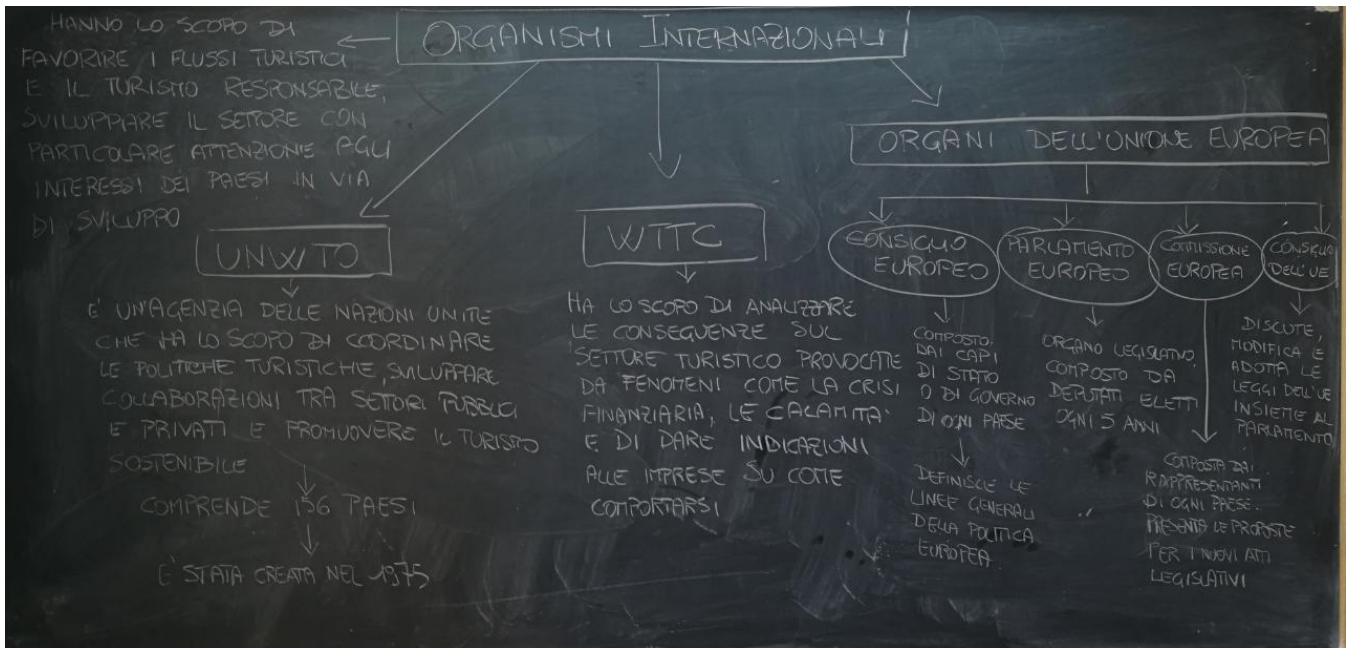 ORGANISMI INTERNAZIONALI
HANNO LO SCOPO DI
FAVORIRE I FLUSSI TURISTICI
E IL TURISMO RESPONSABILE,
SVILUPPARE IL SETTORE CON
PARTICOLARE ATTENZIONE AGLI
INTERESSI DEI PAESI IN VIA
DI SVILUPPO
UNWTO
E' UN'AGENZIA DELLE NAZIONI UNITE
CHE HA LO SCOPO DI COORDINARE
LE POLITICHE TURISTICHE, SVILUPPARE
COLLABORAZIONI TRA SETTORI PUBBLICI
E PRIVATI E PROMUOVERE IL TURISMO
SOSTENIBILE
COMPRENDE 156 PAESI
E' STATA CREATA NEL 1975
WTTC
HA LO SCOPO DI ANALIZZARE
LE CONSEGUENZE SUL
SETTORE TURISTICO PROVOCATE
DA FENOMENI COME LA CRISI
FINANZIARIA, LE CALAMITA'
E DI DARE INDICAZIONI
ALLE IMPRESE SU COME
COMPORTARSI
ORGANI DELL'UNIONE EUROPEA
CONSIGLIO
EUROPEO
COMPOSTO
DAI CAPI
DI STATO
O DI GOVERNO
DI OGNI PAESE
DEFINISCE LE
LINEE GENERALI
DELLA POLITICA
EUROPEA.
PARLAMENTO
EUROPEO
ORGANO LEGISLATIVO
COMPOSTO DA
DEPUTATI ELETTI
OGNI 5 ANNI
COMMISSIONE
EUROPEA
COMPOSTA DAI
RAPPRESENTANTI
DI OGNI PAESE.
PRESENTA LE PROPOSTE
PER I NUOVI ATTI
LEGISLATIVI
CONSIGLIO
DELL'UE
DISCUTE,
MODIFICA E
ADOTTA LE
LEGGI DELL'UE
INSIEME AL
PARLAMENTO